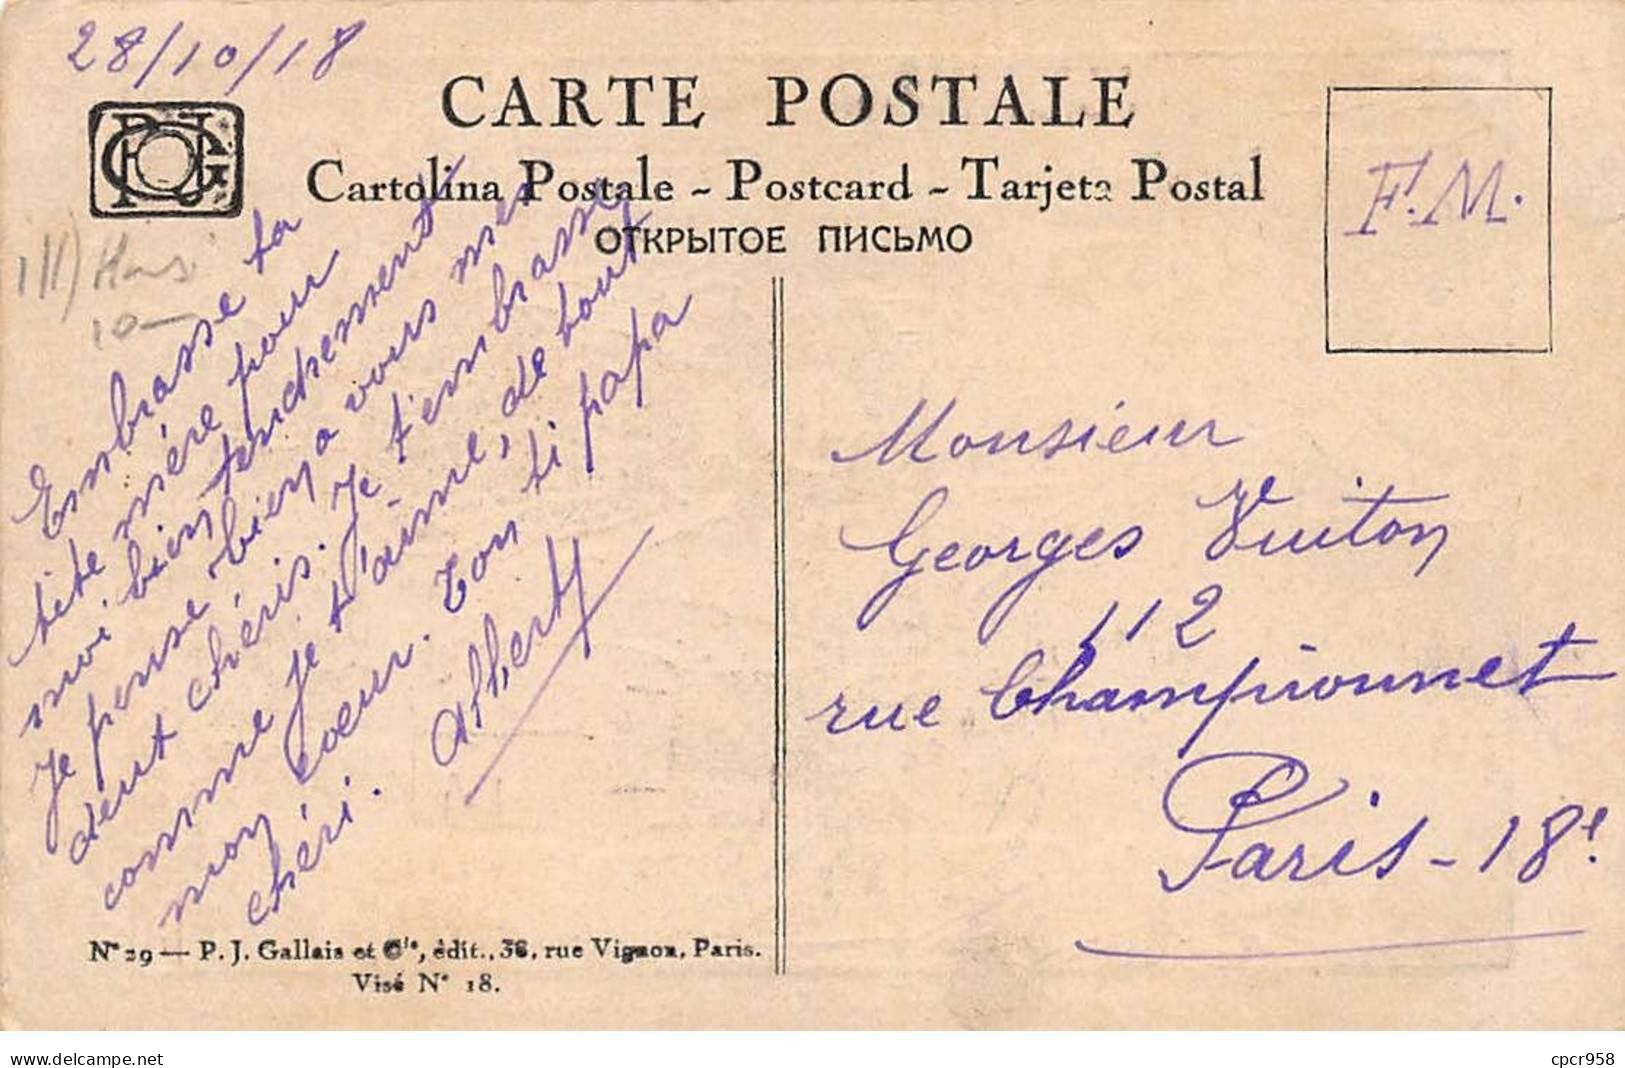 28/10/18
CARTE POSTALE
Cartolina Postale - Postcard - Tarjeta Postal
ОТКРЫТОЕ ПИСЬМО
F.M.
10—
Embrasse ta
tite mère pour
moi bien tendrement
Je pense bien a vous mes
deux chéris. Je t'embrasse
comme Je t'aime, de tout
mon coeur. Ton ti papa
chéri. Albert
Monsieur
Georges Vuiton
112
rue Championnet
Paris - 18e.
N° 29 — P. J. Gallais et Cie, édit., 38, rue Vignon, Paris.
Visé N° 18.
cpcr958
www.delcampe.net